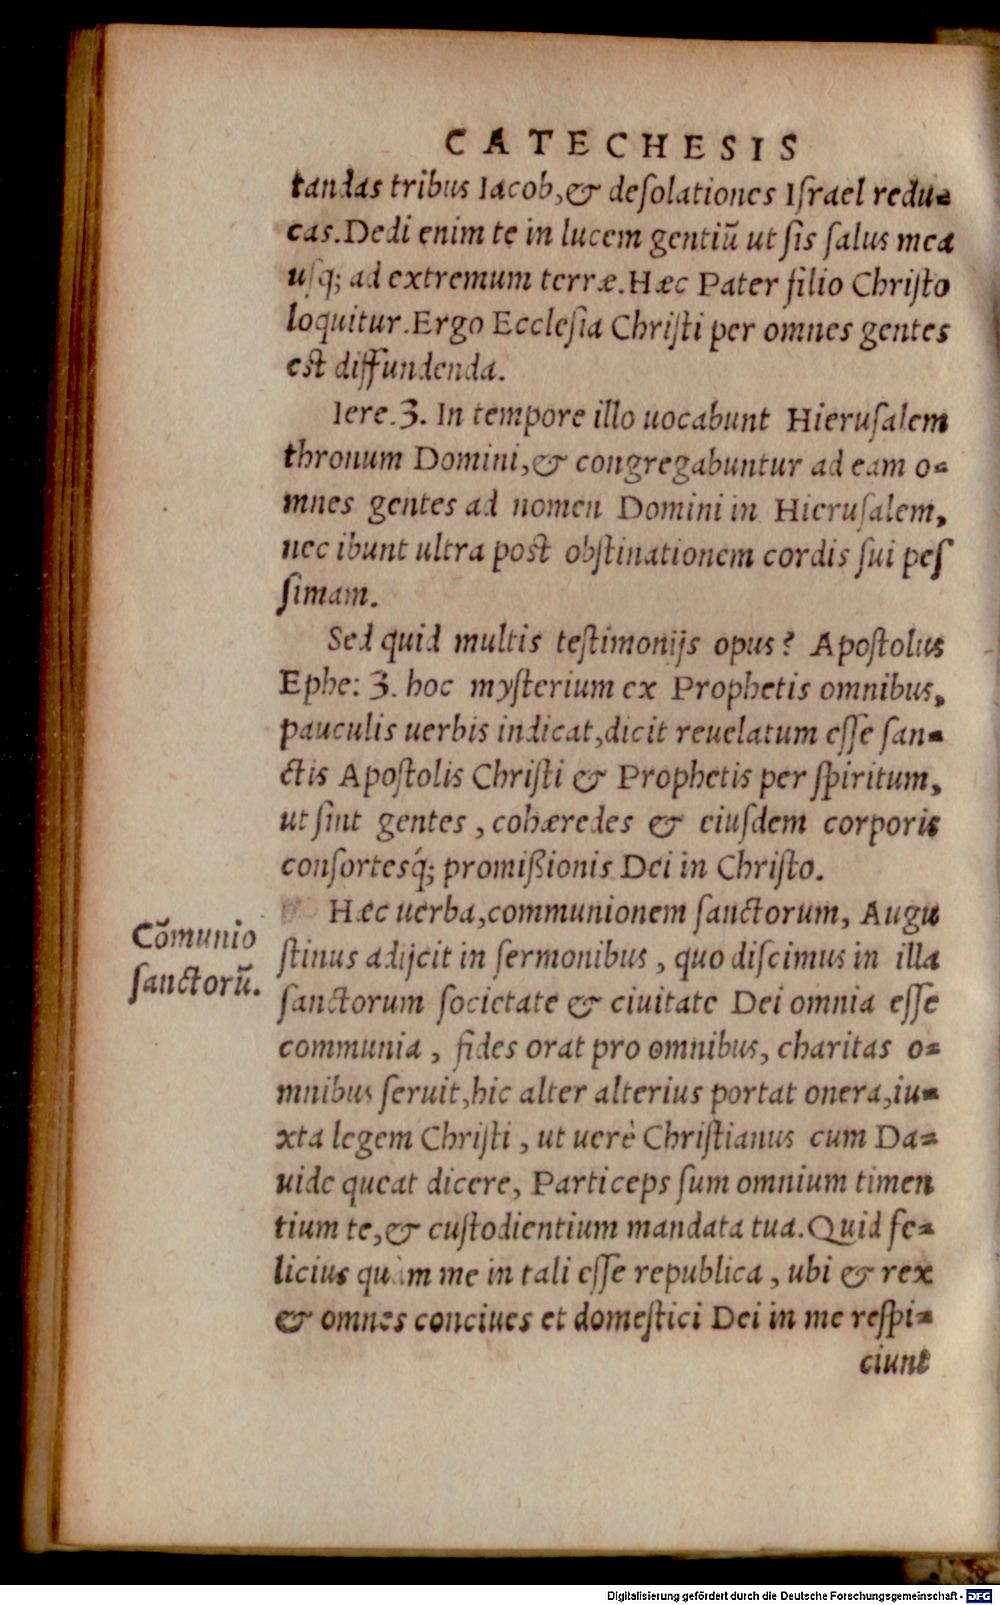 CATECHESIS
tandas tribus Iacob,& deſolationes Iſrael redu-
cas.Dedi enim te in lucem gentiũ ut ſis ſalus mea
uſq; ad extremum terræ.Hæc Pater filio Chriſto
loquitur.Ergo Eccleſia Chriſti per omnes gentes
eſt diffundenda.
Iere.3. In tempore illo uocabunt Hieruſalem
thronum Domini,& congregabuntur ad eam o-
mnes gentes ad nomen Domini in Hieruſalem,
nec ibunt ultra poſt obſtinationem cordis ſui peſ
ſimam.
Sed quid multis teſtimonijs opus? Apoſtolus
Ephe: 3. hoc myſterium ex Prophetis omnibus,
pauculis uerbis indicat,dicit reuelatum eſſe ſan-
ctis Apoſtolis Chriſti & Prophetis per ſpiritum,
ut ſint gentes, cohæredes & eiuſdem corporis
conſortesq́; promißionis Dei in Chriſto.
Hæc uerba,communionem ſanctorum, Augu
ſtinus adijcit in ſermonibus, quo diſcimus in illa
ſanctorum ſocietate & ciuitate Dei omnia eſſe
communia, fides orat pro omnibus, charitas o-
mnibus ſeruit,hic alter alterius portat onera,iu-
xta legem Chriſti, ut uerè Chriſtianus cum Da-
uide queat dicere, Particeps ſum omnium timen
tium te,& cuſtodientium mandata tua.Quid fe-
licius quàm me in tali eſſe republica, ubi & rex
& omnes conciues et domeſtici Dei in me reſpi-
ciunt
Cõmunio
ſanctorũ.
Digitalisierung gefördert durch die Deutsche Forschungsgemeinschaft - DFG